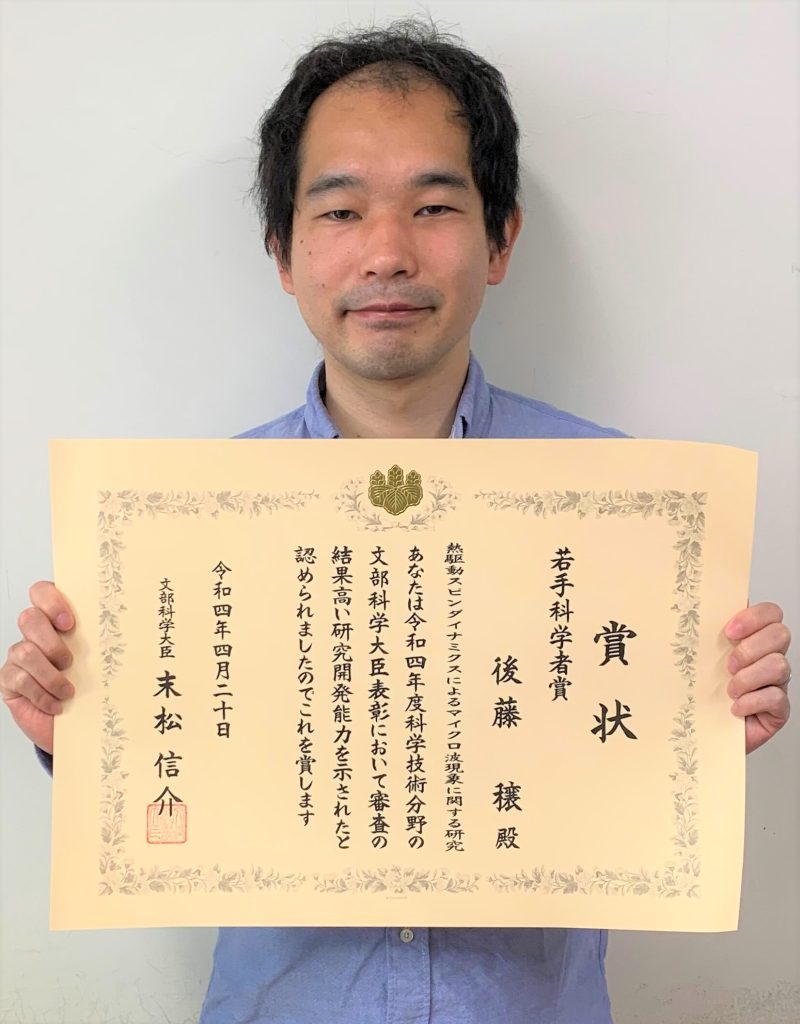 賞状
若手科学者賞
後藤 穣 殿
熱駆動スピンダイナミクスによるマイクロ波現象に関する研究
あなたは令和四年度科学技術分野の
文部科学大臣表彰において審査の
結果高い研究開発能力を示されたと
認められましたのでこれを賞します
令和四年四月二十日
文部科学大臣 末松信介